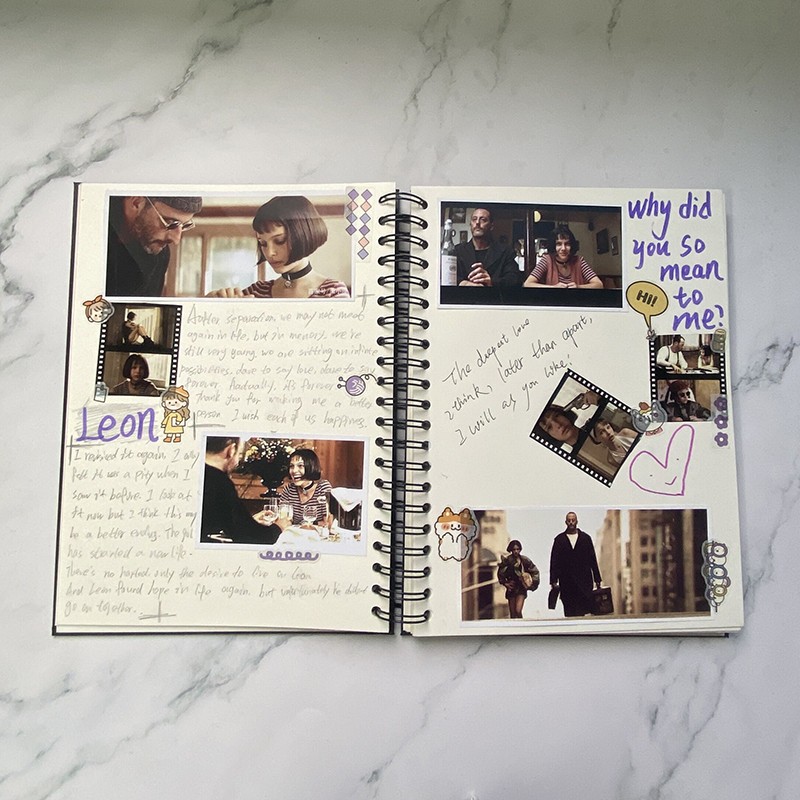 After separation we may not meet
again in life, but in memory, we're
still very young, we are writing an intense
possibilities, dare to say love, dare to say
forever. Actually, it's forever
thank you for making me a better
person. I wish each of us happiness.
Leon
I revisited it again. I only
felt it was a pity when I
saw it before. I look at
it now but I think this may
be a better ending. The girl
has started a new life.
There's no hatred only the desire to live on Leon
And Leon found hope in life again. but unfortunately he didn't
go on together.
why did
you so
mean
to
me?
Hi!
The deepest love
I think, later than apart,
I will as you like.